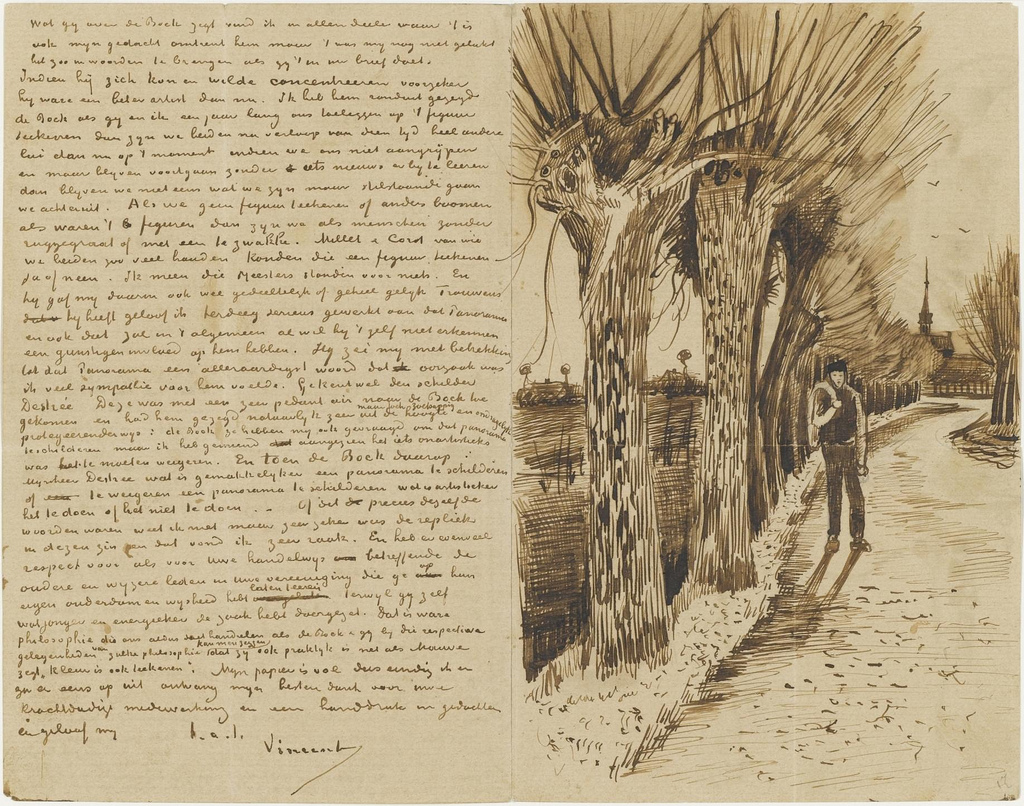 Wat gij over de Bock zegt vind ik in allen deele waar 't is
ook mijn gedacht omtrent hem maar 't was mij nog niet gelukt
het zoo in woorden te brengen als gij 't in uw brief doet.
Indien hij zich kon en wilde concentreeren voorzeker
hij ware een beter artist dan nu. Ik heb hem ronduit gezegd
de Bock als gij en ik een jaar lang ons toeleggen op 't figuur
teekenen dan zijn we beiden na verloop van dien tijd heel andere
lui dan nu op 't moment indien we ons niet aangrijpen
en maar blijven voortgaan zonder iets nieuws er bij te leeren
dan blijven we niet eens wat we zijn maar stilstaande gaan
we achteruit. Als we geen figuur teekenen of anders boomen
als waren 't figuren dan zijn we als menschen zonder
ruggegraat of met een te zwakke. Millet & Corot van wie
we beiden zoo veel houden konden die een figuur teekenen
Ja of neen. Ik meen die Meesters stonden voor niets. En
hij gaf mij daarin ook wel gedeeltelijk of geheel gelijk Trouwens
hij heeft geloof ik terdeeg serieus gewerkt aan dat Panorama
en ook dat zal in 't algemeen al wil hij 't zelf niet erkennen
een gunstigen invloed op hem hebben. Hij zei mij met betrekking
tot dat Panorama een alleraardigst woord dat oorzaak was
ik veel sympathie voor hem voelde. Ge kent wel den schilder
Destrée Deze was met een zeer pedant air naar de Bock toe
gekomen en had hem gezegd natuurlijk zeer uit de hoogte en
maar toch
protegeerenderwijs: de Bock ze hebben mij ook gevraagd om dat panorama
te schilderen maar ik heb gemeend aangezien het iets onartistieks
was het te moeten weigeren. En toen de Bock daarop:
mijnheer Destrée wat is gemakkelijker een panorama te schilderen
of te weigeren een panorama te schilderen wat is artistieker
het te doen of het niet te doen. – Of dit precies dezelfde
woorden waren weet ik niet maar zeer zeker was de repliek
in dezen zin en dat vond ik zeer raak. En heb er evenveel
respect voor als voor uwe handelwijs betreffende de
oudere en wijzere leden in uwe vereeniging die ge op hun
eigen ouderdom en wijsheid hebt laten teeren terwijl gij zelf
wat jonger en energieker de zaak hebt doorgezet. Dat is ware
philosophie die ons aldus doet handelen als de Bock & gij bij die respectieve
gelegenheden van zulke philosophie kan men zeggen dat zij ook praktijk is net als Mauve
zegt "kleur is ook teekenen". Mijn papier is vol dus eindig ik en
ga er eens op uit ontvang mijn besten dank voor uwe
krachtdadige medewerking en een handdruk in gedachten
en geloof mij t.à.t.
Vincent